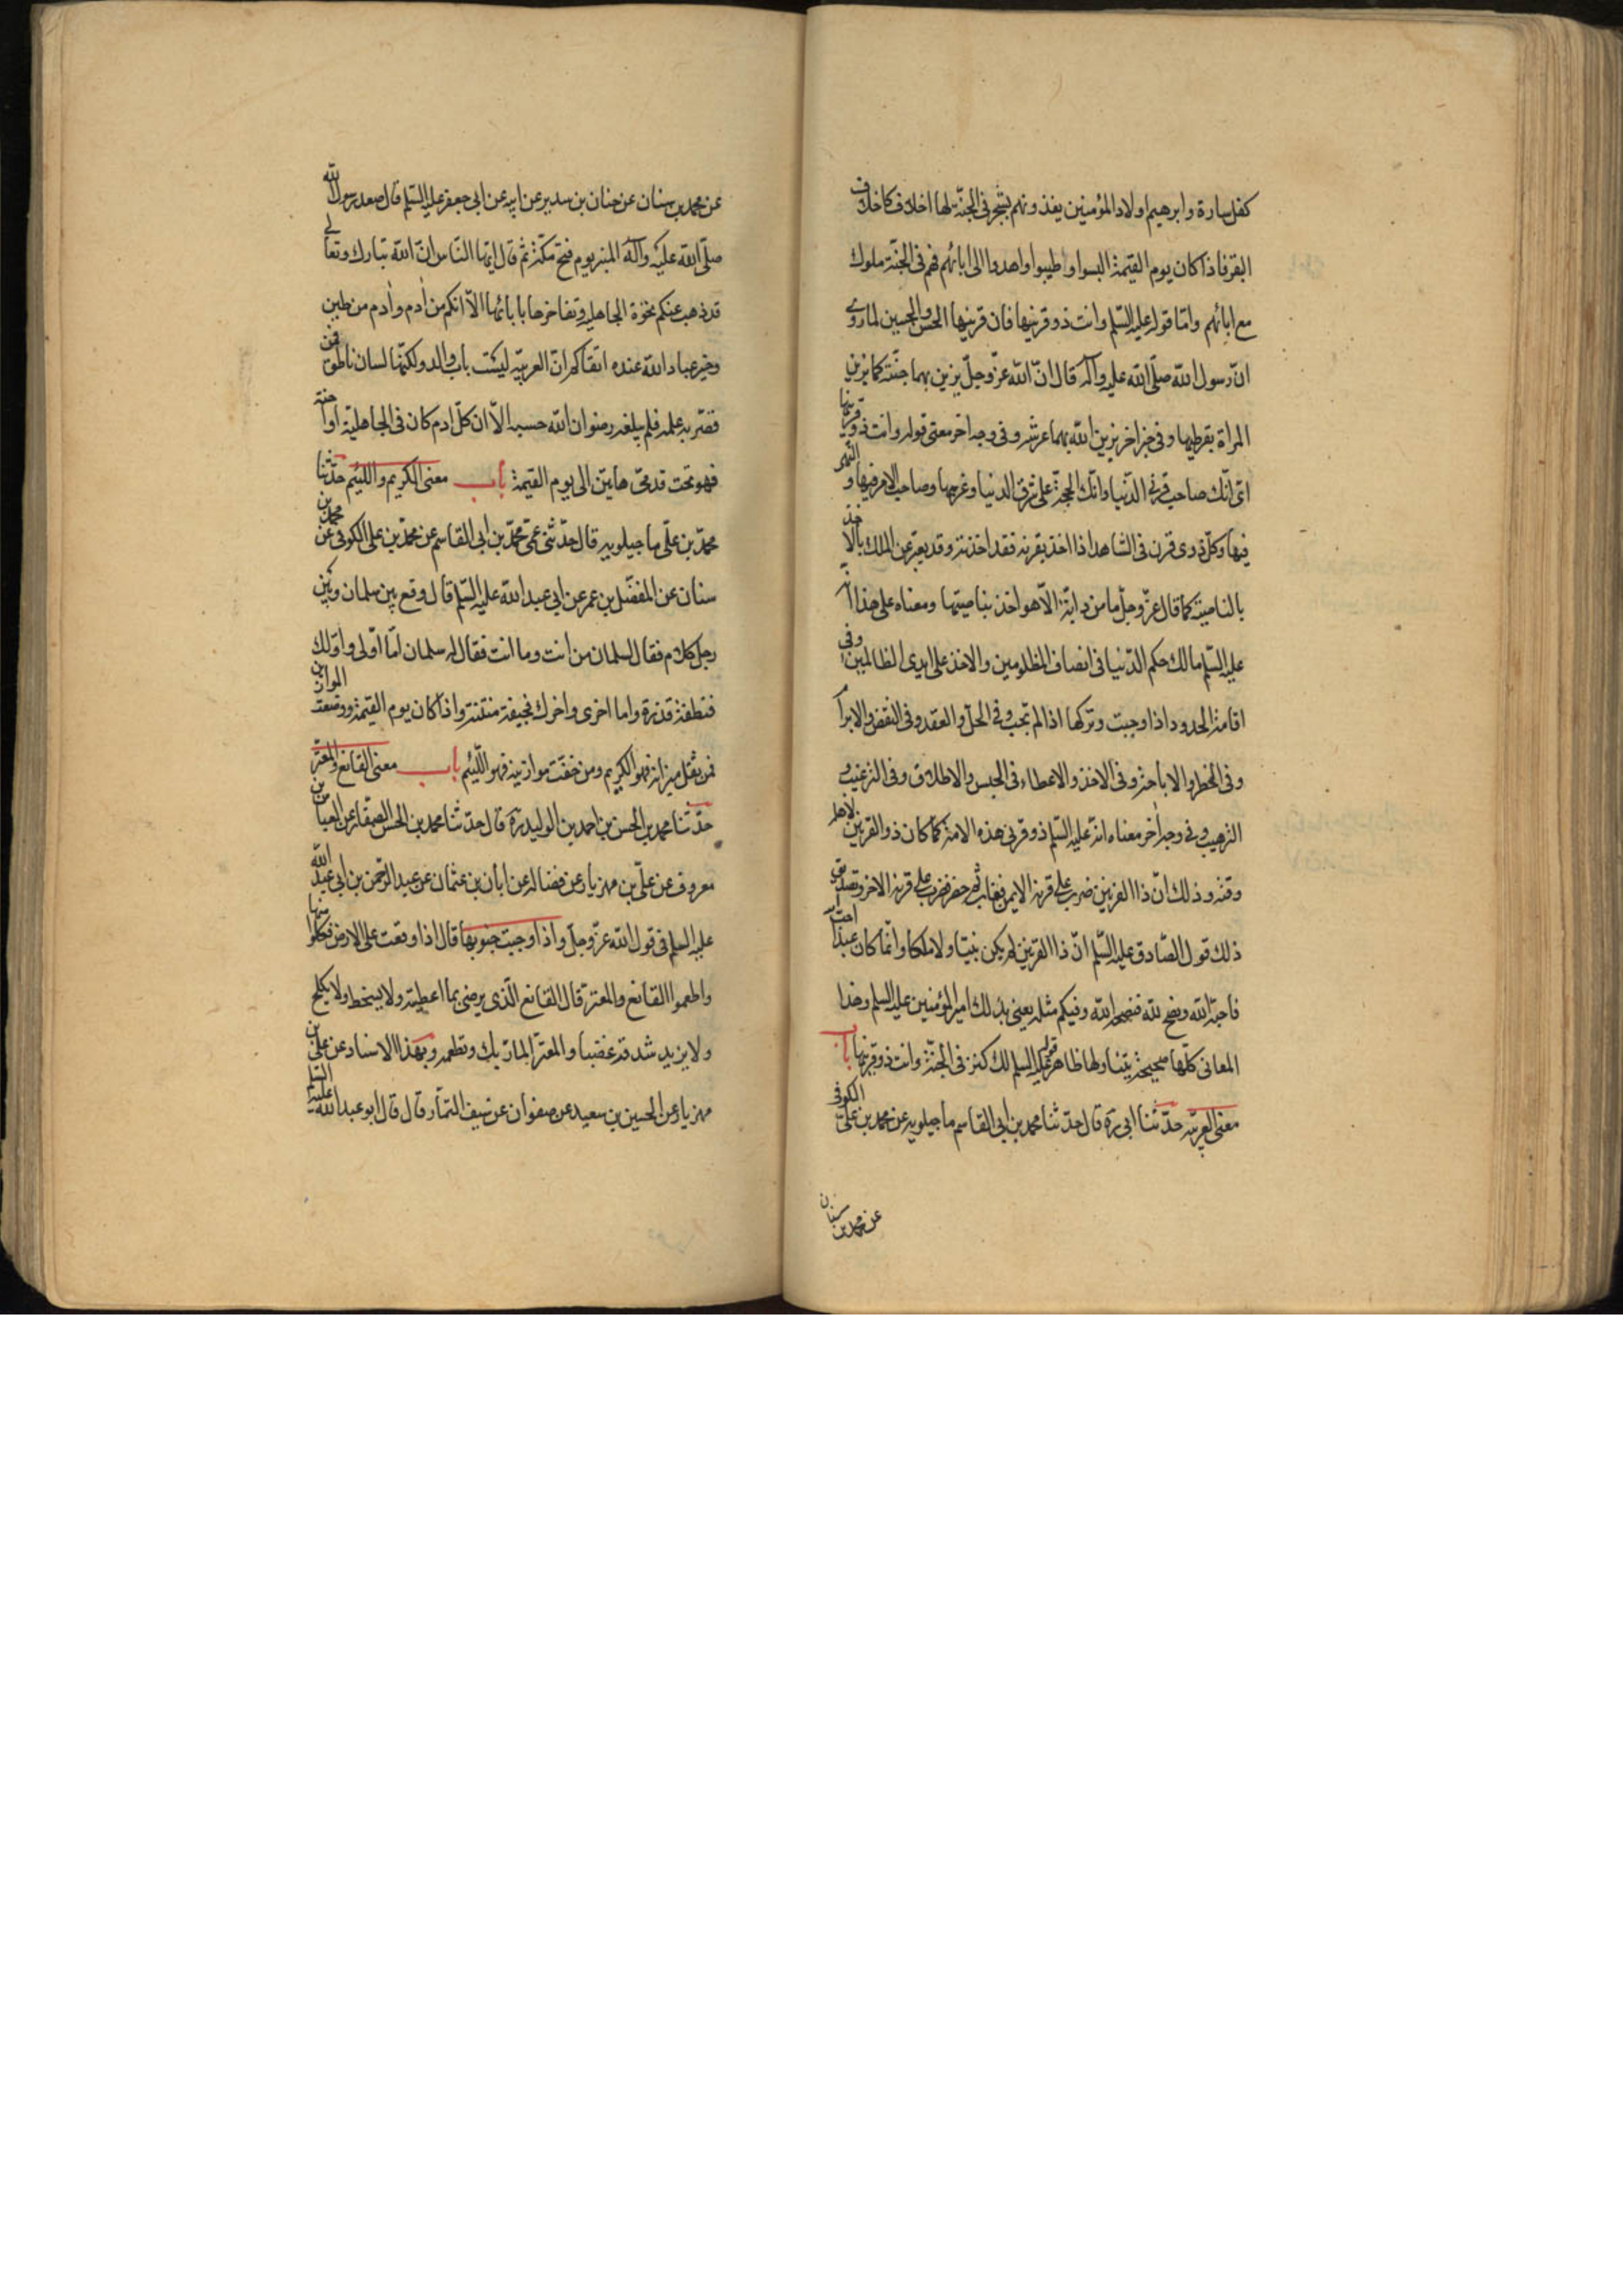 كفل سارة وابرهيم اولاد المؤمنين يغذونهم بشجر في الجنة لها اخلاف كاخلاف
البقر فاذا كان يوم القيمة البسوا واطيبوا واهدوا الى ابائهم فهم في الجنة ملوك
مع ابائهم واما قوله عليه السلم وانت ذو قرنيها فان قرنيها الحسن والحسين لما روى
ان رسول الله صلى الله عليه وآله قال ان الله عز وجل يزين بهما جنته كما تزين
المراة بقرطيها وفي خبر اخر يزين الله بهما عرشه وفي وجه اخر معنى قوله وانت ذو قرنيها
اى انك صاحب قرنى الدنيا وانك الحجة على شرق الدنيا وغربها وصاحب الامر فيها و النهى
فيها وكل ذى قرن في الشاهد اذا اخذ بقرنه فقد اخذ به وقد يعبر عن الملك بالاخذ
بالناصية كما قال عز وجل ما من دابة الا هو اخذ بناصيتها ومعناه على هذا انه
عليه السلم مالك حكم الدنيا في انصاف المظلومين والاخذ على ايدى الظالمين وفى
اقامة الحدود اذا وجبت وتركها اذا لم تجب وفي الحل والعقد وفي النقض والابرا
وفي الخطر والاباحة وفي الاخذ والاعطاء وفي الحبس والاطلاق وفي الترغيب و
الترهيب وفي وجه اخر معناه انه عليه السلم ذو قرنى هذه الامة كما كان ذو القرنين لاهل
وقته وذلك ان ذا القرنين ضرب على قرنه الايمن فغاب ثم حضر فضرب على قرنه الاخر وتصديق
ذلك قول الصادق عليه السلم ان ذا القرنين لم يكن نبيا ولا ملكا وانما كان عبدا احب
فاحبه الله ونصح لله فنصحه الله وفيكم مثله يعنى بذلك امير المؤمنين عليه السلم وهذا
المعانى كلها صحيحة يتنا ولها ظاهر قوله عليه السلم لك كنز في الجنة وانت ذو قرنيها باب
معنى العربية حدثنا ابى ره قال حدثنا محمد بن ابى القاسم ماجيلويه عن محمد بن على الكوفى
عن محمد بن سنان
عن محمد بن سنان عن حنان بن سدير عن ابيه عن ابى جعفر عليه السلم قال صعد رسول الله
صلى الله عليه وآله المنبر يوم فتح مكة ثم قال ايها الناس ان الله تبارك وتعالى
قد ذهب عنكم نخوة الجاهلية وتفاخرها بابائها الا انكم من ادم وادم من طين
وخير عباد الله عنده اتقاكم ان العربية ليست باب والد ولكنها لسان ناطق فمن
قصر به عمله فلم يبلغه رضوان الله حسبه الا ان كل دم كان في الجاهلية او احنة
فهو تحت قدمى هاتين الى يوم القيمة باب معنى الكريم واللئيم حدثنا
محمد بن على ماجيلويه قال حدثنى عمى محمد بن ابى القاسم عن محمد بن على الكوفى عن محمد بن
سنان عن المفضل بن عمر عن ابى عبد الله عليه السلم قال وقع بين سلمان وبين
رجل كلام فقال لسلمان من انت وما انت فقال له سلمان اما اولى واولك
فنطفة قذرة واما اخرى واخرك فجيفة منتنة واذا كان يوم القيمة ووضعت الموازين
فمن ثقل ميزانه فهو الكريم ومن خفت موازينه فهو اللئيم باب معنى القانع والمعتر
حدثنا محمد بن الحسن بن احمد بن الوليد ره قال حدثنا محمد بن الحسن الصفار عن العباس بن
معروف عن على بن مهزيار عن فضالة عن ابان بن عثمان عن عبد الرحمن بن ابى عبد الله
عليه السلم في قول الله عز وجل واذا وجبت جنوبها قال اذا وقعت على الارض فكلوا منها
واطعموا القانع والمعتر قال القانع الذى يرضى بما اعطيته ولا يسخط ولا يكلح
ولا يزبد شدقه غضبا والمعتر المار بك وتطعمه وبهذا الاسناد عن على بن
مهزيار عن الحسين بن سعيد عن صفوان عن سيف التمار قال قال ابو عبد الله عليه السلم